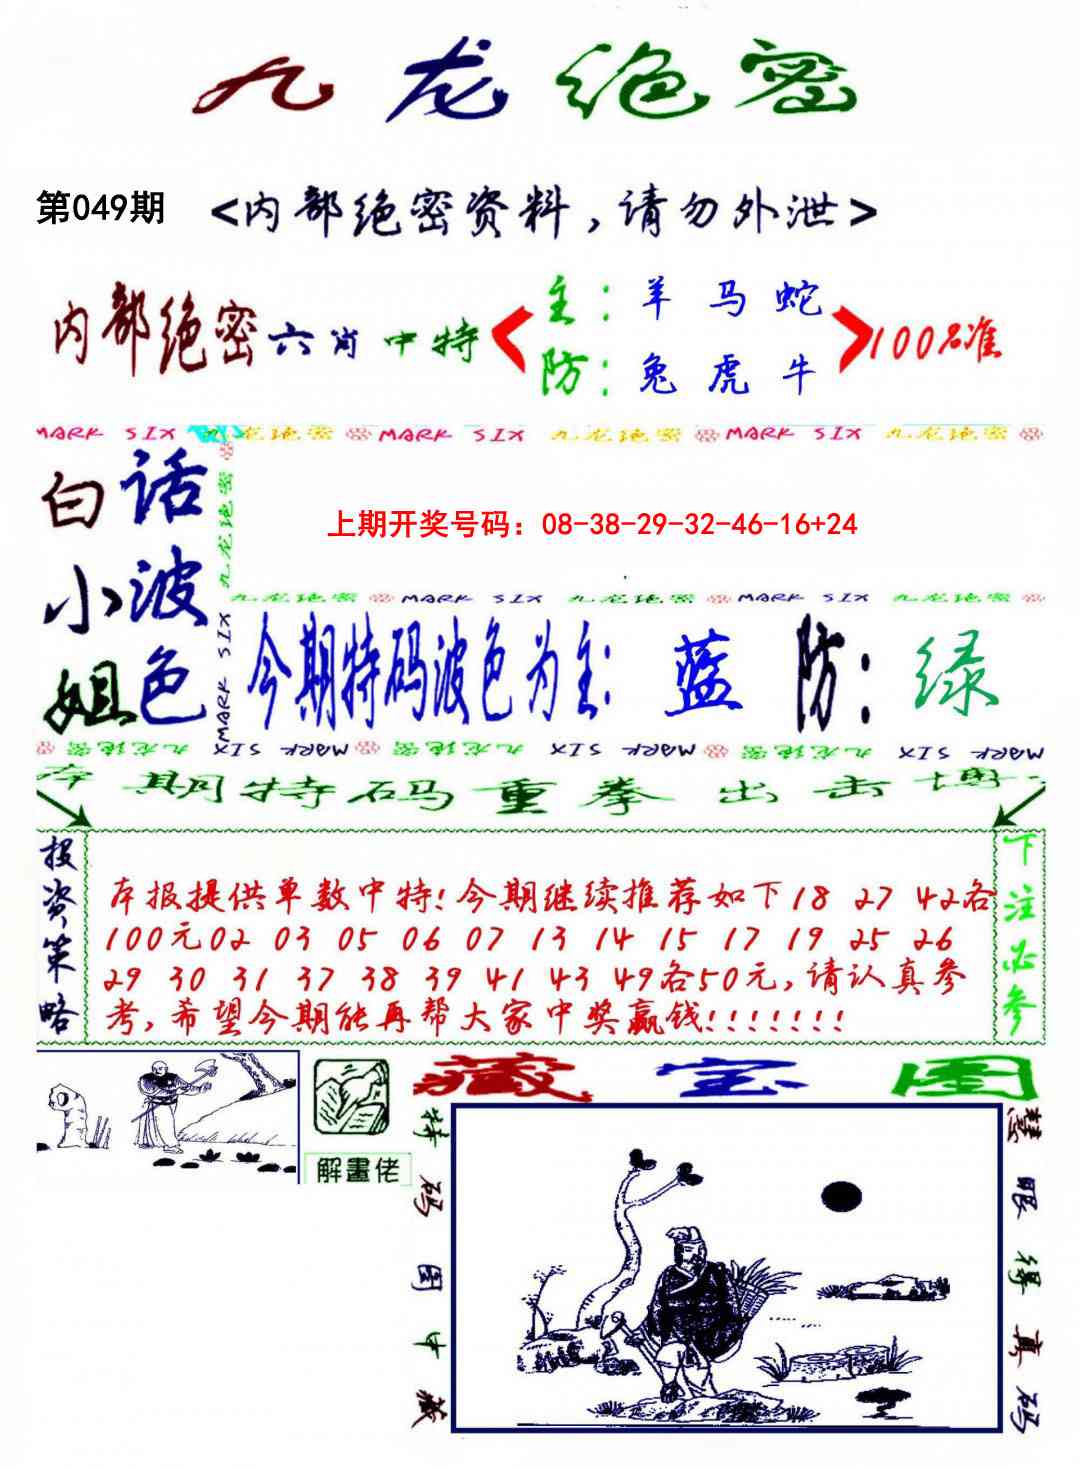 九龙绝密
第049期 <内部绝密资料,请勿外泄>
内部绝密六肖中特
主: 羊 马 蛇
防: 兔 虎 牛
100%准
MARK SIX 九龙绝密 MARK SIX 九龙绝密 MARK SIX 九龙绝密
白话
小波
姐色
九龙绝密
MARK SIX
上期开奖号码：08-38-29-32-46-16+24
九龙绝密 MARK SIX 九龙绝密 MARK SIX 九龙绝密
今期特码波色为主: 蓝 防: 绿
九龙绝密 MARK SIX 九龙绝密 MARK SIX 九龙绝密 MARK SIX
本期特码重拳出击博
投资策略
本报提供单数中特!今期继续推荐如下18 27 42各
100元02 03 05 06 07 13 14 15 17 19 25 26
29 30 31 37 38 39 41 43 49各50元,请认真参
考,希望今期能再帮大家中奖赢钱!!!!!!!
下注必参
解畫佬
藏宝图
特码图中藏
慧眼得真码